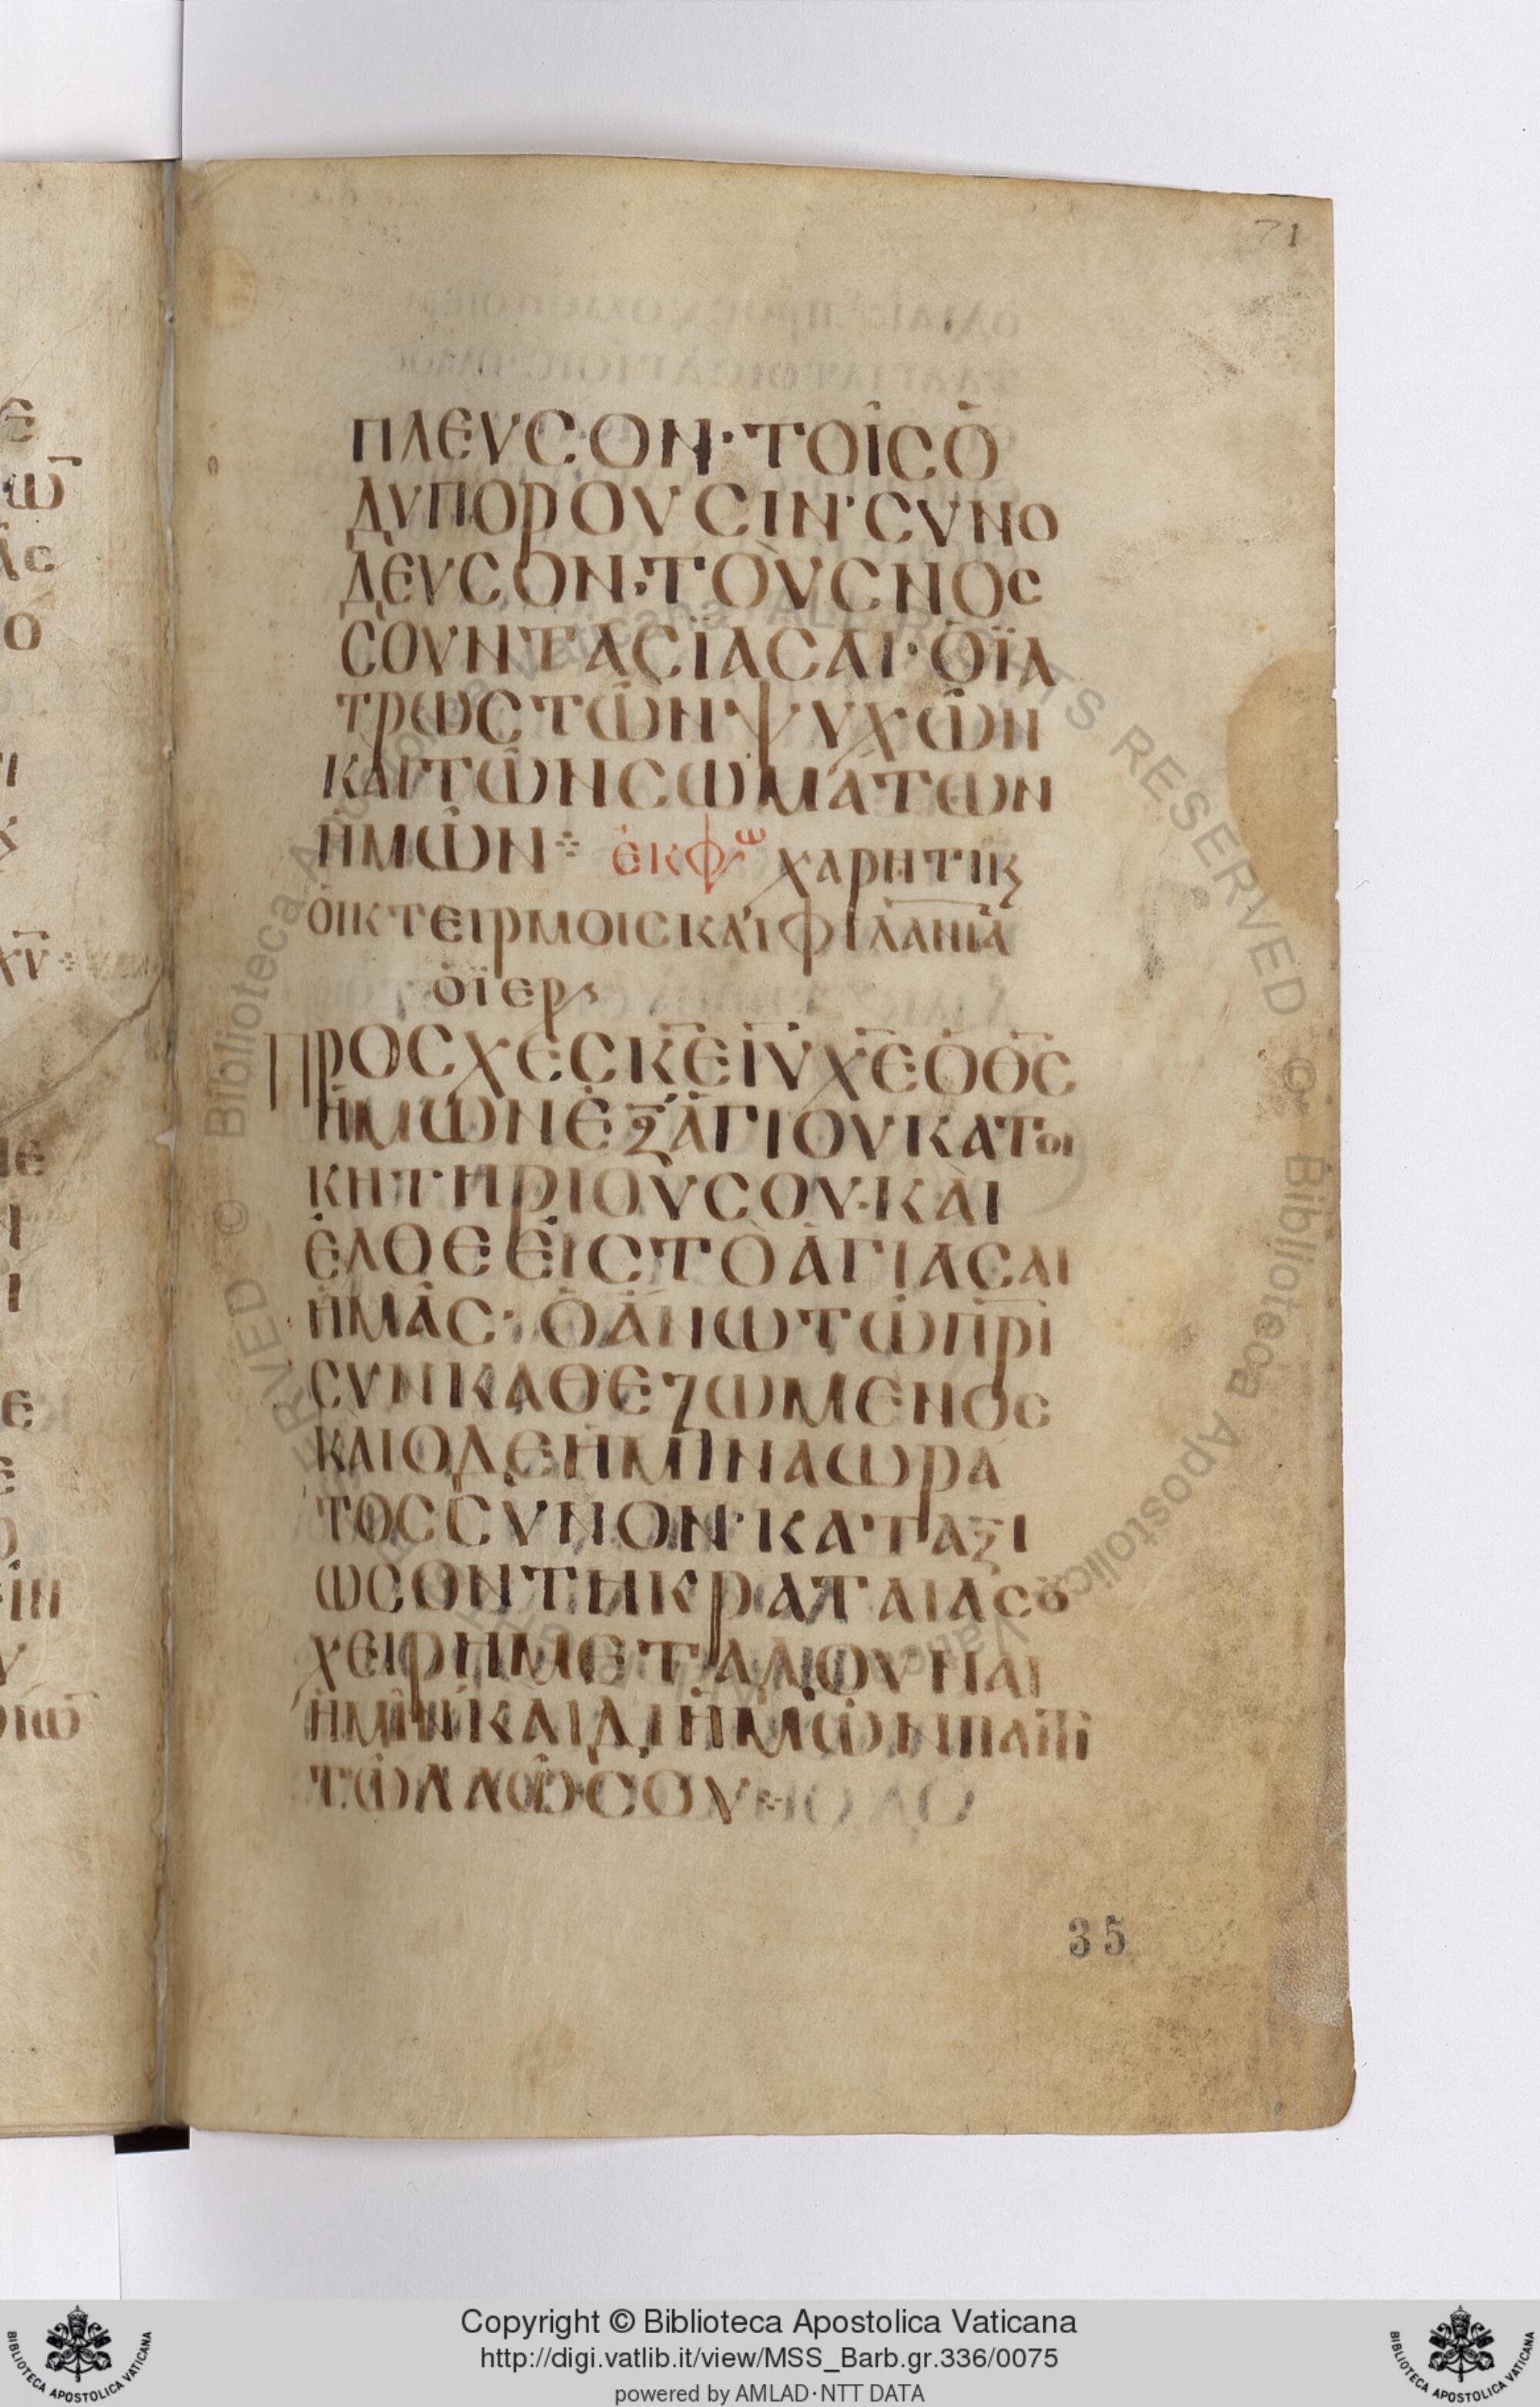 71
ΠΛΕΥСΟΝ·ΤΟῖСὉ
ΔΥΠΟΡΟΥСΙΝ·СΥΝΟ
ΔΕΥСΟΝ·ΤΟῪСΝΟС
СΟΥΝΤΑСΪΑСΑΙ·ὉΪΑ
ΤΡѠСΤῶΝΨΥΧῶΝ
ΚΑΙΤῶΝСѠΜΆΤѠΝ
ΗΜῶΝ⁘ ἐκφω χαρητικ
ὀικτειρμοιςκὰιφιλανῑᾱ
ὁϊερ
ΠΡΟСΧΕСΚ̅Ε̅Ι̅Υ̅Χ̅Ε̅ὉΘ̅С̅
ἩΜѠΝἘΞἉΓΙΟΥΚΑΤΟΙ
ΚΗΤΗΡΙΟΥСΟΥ·ΚΑῚ
ἘΛΘΕἘΙСΤῸἉΓΙΑСΑΙ
ἩΜᾶС·ὉἌΝѠΤῶΠ̅Ρ̅Ι̅
СΥΝΚΑΘΕΖѠΜΕΝΟС
ΚΑΙΟΔΕΗΜΙΝΑѠΡΑ
ΤΟССΥΝΟΝ·ΚΑΤΑΞΙ
ѠСΟΝΤΗΚΡΑΤΑΙΑСȢ
ΧΕΙΡΗΜΕΤΑΔΟΥΝΑΙ
ἩΜῖΝΚΑΙΔΙἩΜῶΝΠΑΝΤΙ
ΤῶΛΑῶСΟΥ⁘
35
Copyright © Biblioteca Apostolica Vaticana
http://digi.vatlib.it/view/MSS_Barb.gr.336/0075
powered by AMLAD·NTT DATA
BIBLIOTECA APOSTOLICA VATICANA
BIBLIOTECA APOSTOLICA VATICANA